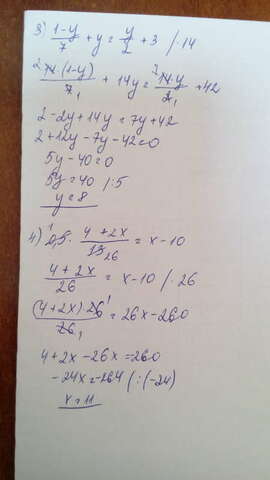 3) (1-y)/7 + y = y/2 + 3 /·14
2 14·(1-y)/7 1 + 14y = 7 14·y/2 1 + 42
2-2y+14y = 7y+42
2+12y-7y-42=0
5y-40=0
5y=40 /:5
y=8
4) 1 0,5· (4+2x)/13 26 = x-10
(4+2x)/26 = x-10 /·26
(4+2x)·26 1/26 1 = 26x-260
4+2x-26x=-260
-24x=-264 /:(-24)
x=11